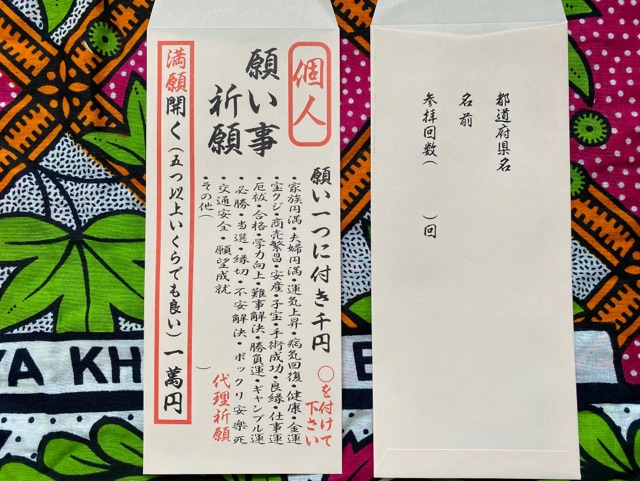 個人
願い事
祈願
願い一つに付き千円
〇を付けて
下さい
・家族円満・夫婦円満・運気上昇・病気回復・健康・金運
・宝クジ・商売繁昌・安産・子宝・手術成功・良縁・仕事運
・厄祓・合格・学力向上・難事解決・勝負運・ギャンブル運
・必勝・当選・縁切・不安解決・ポックリ安楽死
交通安全・願望成就
・その他(　　　)
代理祈願
満願開く(五つ以上いくらでも良い)一萬円
都道府県名
名前
参拝回数(　　)回
YA KH